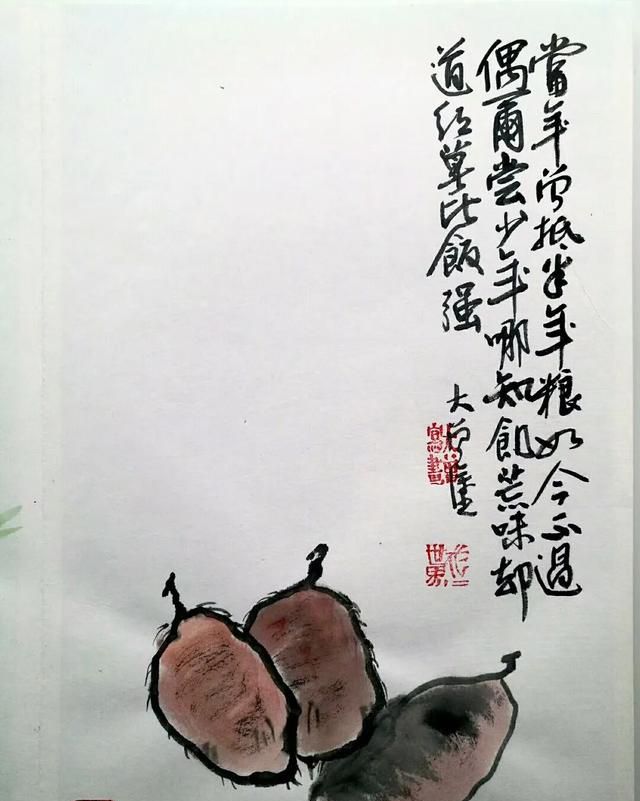 當年曾抵半年粮如今不過
偶爾尝少年哪知飢荒味却
道红薯比飯强